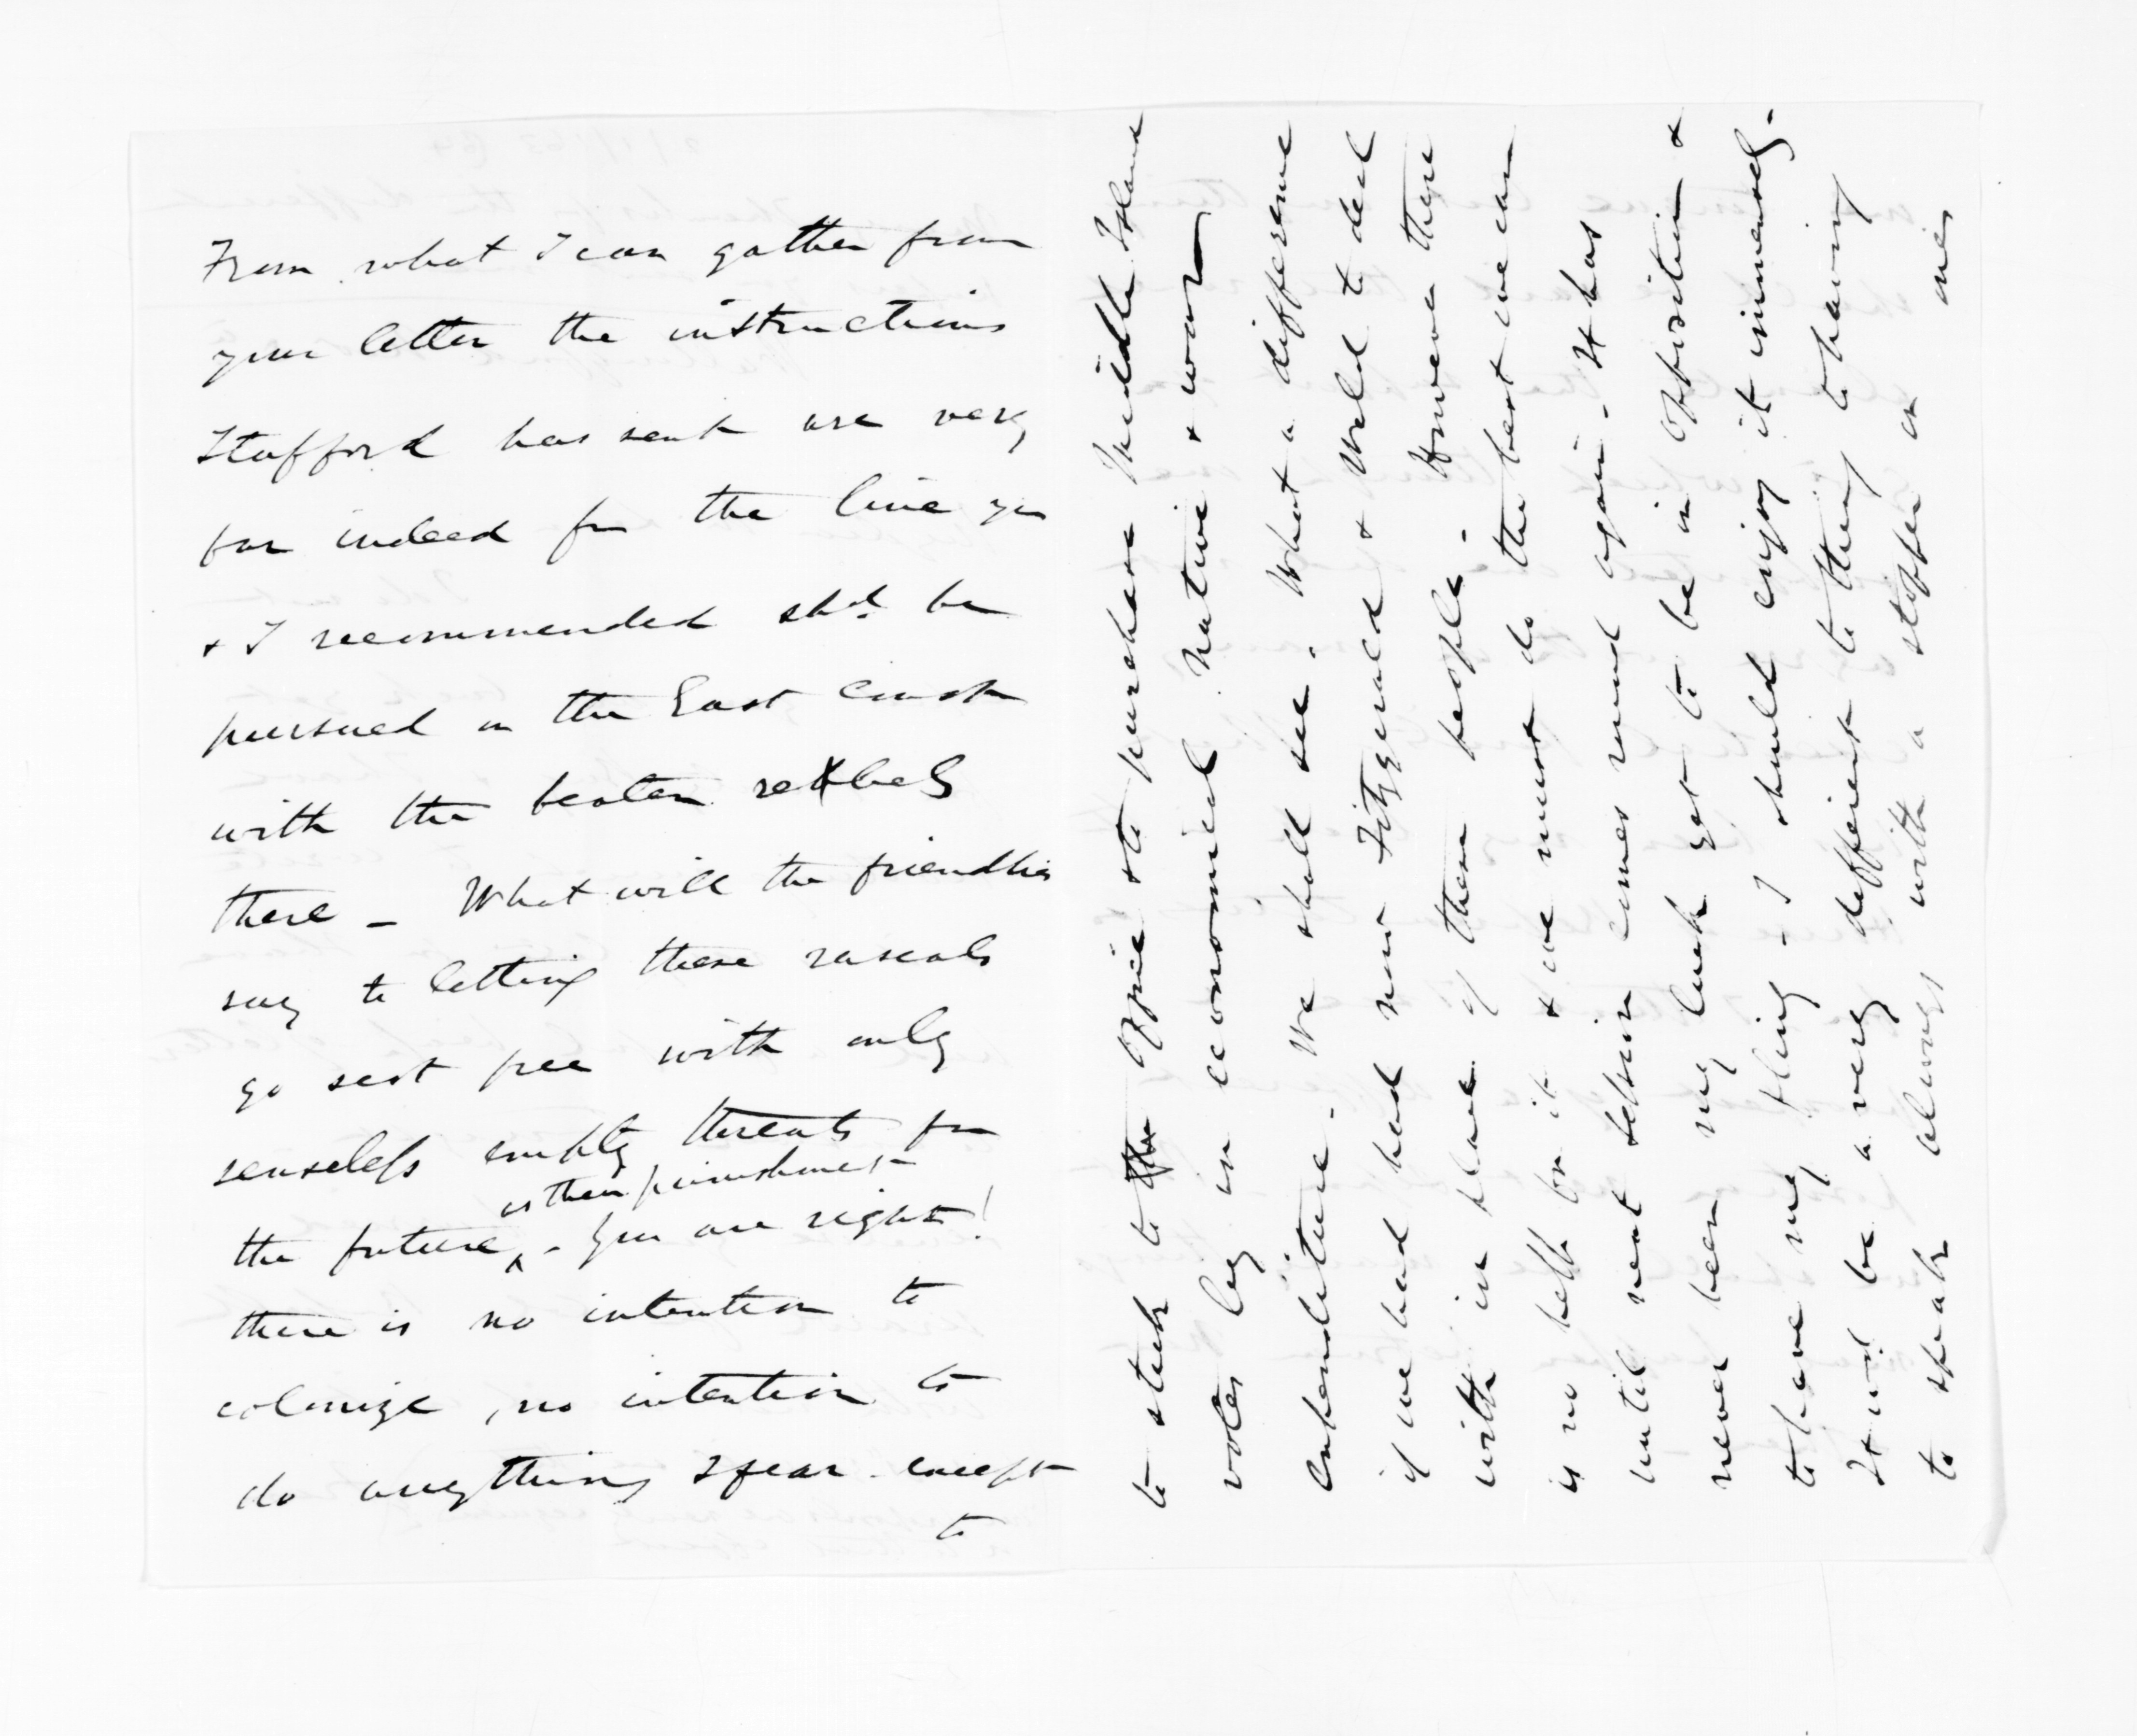 From what I can gather from
your letter the instructions
Stafford has sent are very
far indeed fr the line you
& I recommended shd. be
pursued on the East Coast
with the beaten rebels
there - What will the friendlies
say to letting these rascals
go scot free with only
senseless empty threats for
the future, as their punishment - You are right!
there is no intention to
colonize, no intention to
do anything I fear except
to
to stick to office & to purchase Middle Island
votes by an economical native & war
expenditure. We shall see. What a difference
if we had had now Fitzgerald & Weld to deal
with in place of them people. However there
is no help for it & we must do the best we can
until next session comes round again. It has
never been my luck yet to be in opposition &
to have my fling - I should enjoy it immensely -
It wd be a very different to thing to having
to speak always with a stopper on
one's